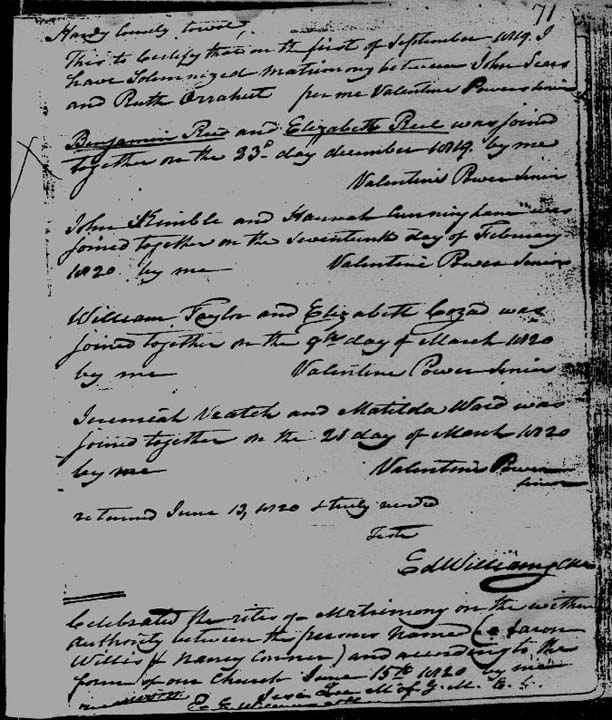 71
Hardy County, towit,
This to Certify that on the first of September 1819. I
have Solemnized matrimony between John Sears
and Ruth per me Valentine Power Senior
Benjamin and Elizabeth was joined
together on the 23d day december 1819. by me
Valentine Power Senior
John Kimble and Hannah Cunningham was
joined together on the Seventeenth day of February
1820 by me Valentine Power Senior
William Taylor and Elizabeth Cozad was
joined together on the 9th day of March 1820
by me Valentine Power Senior
Jeremiah Veatch and Matilda Ward was
joined together on the 21 day of March 1820
by me Valentine Power
Senior
returned June 13, 1820 & truly recorded
Teste
Ed Williams
Celebrated the rites of Matrimony on the within
Authority between the persons named Aaron
Willis & Nancy Conner) and according to the
form of our Church June 15th 1820 by me